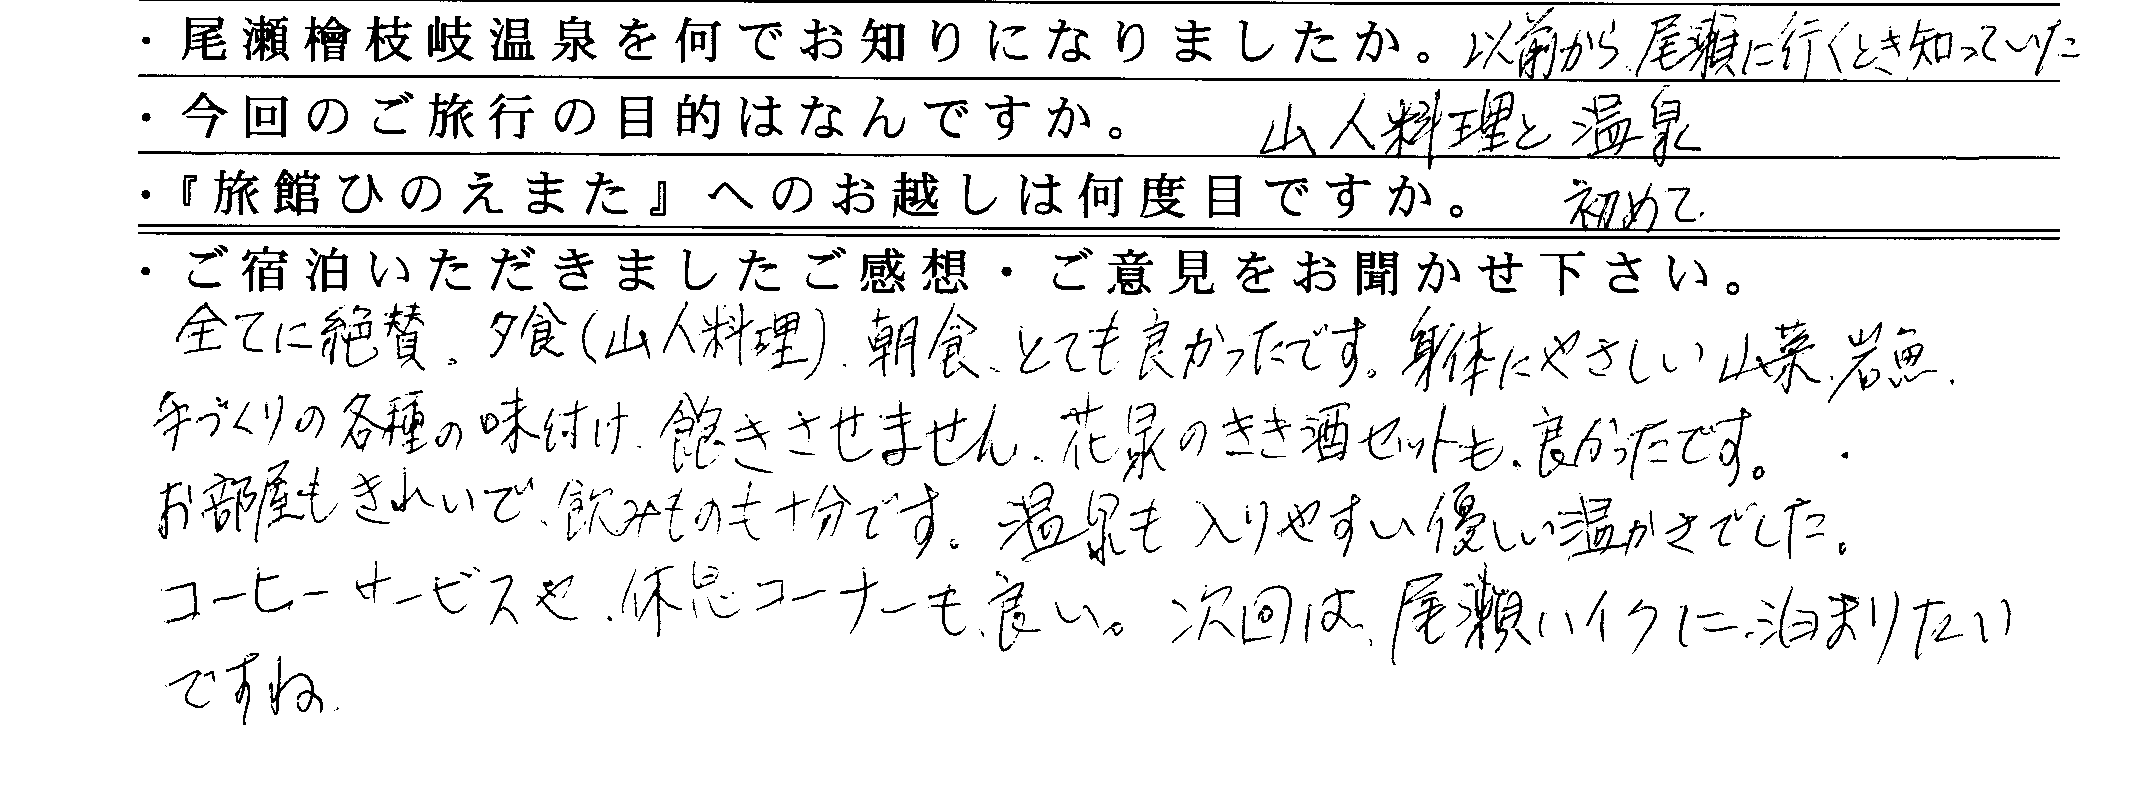 ・尾瀬檜枝岐温泉を何でお知りになりましたか。以前から、尾瀬に行くとき知っていた
・今回のご旅行の目的はなんですか。 山人料理と温泉
・『旅館ひのえまた』へのお越しは何度目ですか。 初めて.
・ご宿泊いただきましたご感想・ご意見をお聞かせ下さい。
全てに絶賛。夕食(山人料理)、朝食、とても良かったです。身体にやさしい山菜、岩魚、
手づくりの各種の味付け、飽きさせません、花泉のきき酒セットも、良かったです。
お部屋もきれいで、飲みものも十分です。温泉も入りやすい優しい温かさでした。
コーヒーサービスや、休息コーナーも、良い。次回は、尾瀬ハイクに、泊まりたい
ですね.